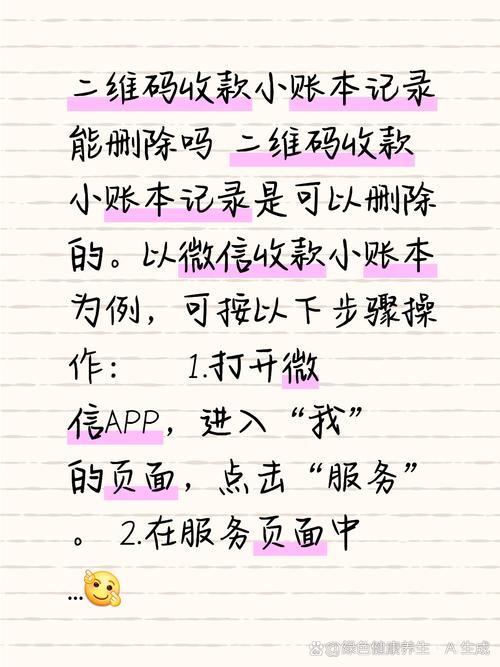 二维码收款小账本记录
能删除吗 二维码收款
小账本记录是可以删除
的。以微信收款小账本
为例，可按以下步骤操
作： 1.打开微
信APP，进入“我”
的页面，点击“服务”
。 2.在服务页面中
...
绿色健康养生 · A 生成